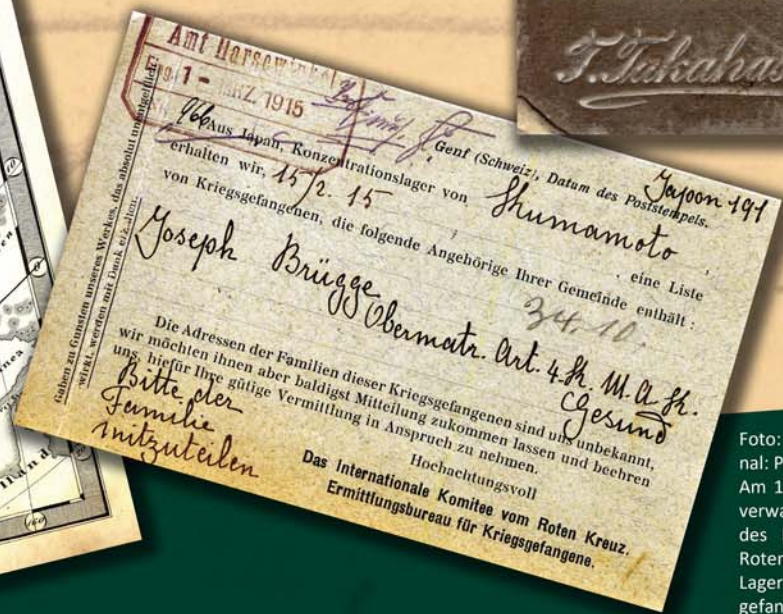 T. Takaha
Amt Harsewinkel
Eing. 1 - MRZ. 1915
966
Genf (Schweiz), Datum des Poststempels.
Japon 191
Aus Japan, Konzentrationslager von Khumamoto,
erhalten wir, 15/2. 15, eine Liste
von Kriegsgefangenen, die folgende Angehörige Ihrer Gemeinde enthält:
34.10.
Joseph Brügge
Obermatr. Art. 4. K. M. A. K.
Gesund
Die Adressen der Familien dieser Kriegsgefangenen sind uns unbekannt,
wir möchten ihnen aber baldigst Mitteilung zukommen lassen und beehren
uns, hiefür Ihre gütige Vermittlung in Anspruch zu nehmen.
Bitte der
Familie
mitzuteilen
Hochachtungsvoll
Das Internationale Komitee vom Roten Kreuz.
Ermittlungsbureau für Kriegsgefangene.
Gaben zu Gunsten unseres Werkes, das absolut unentgeltlich
wirkt, werden mit Dank erhalten.
Foto:
nal: P
Am 1
verwa
des
Roten
Lager
gefan